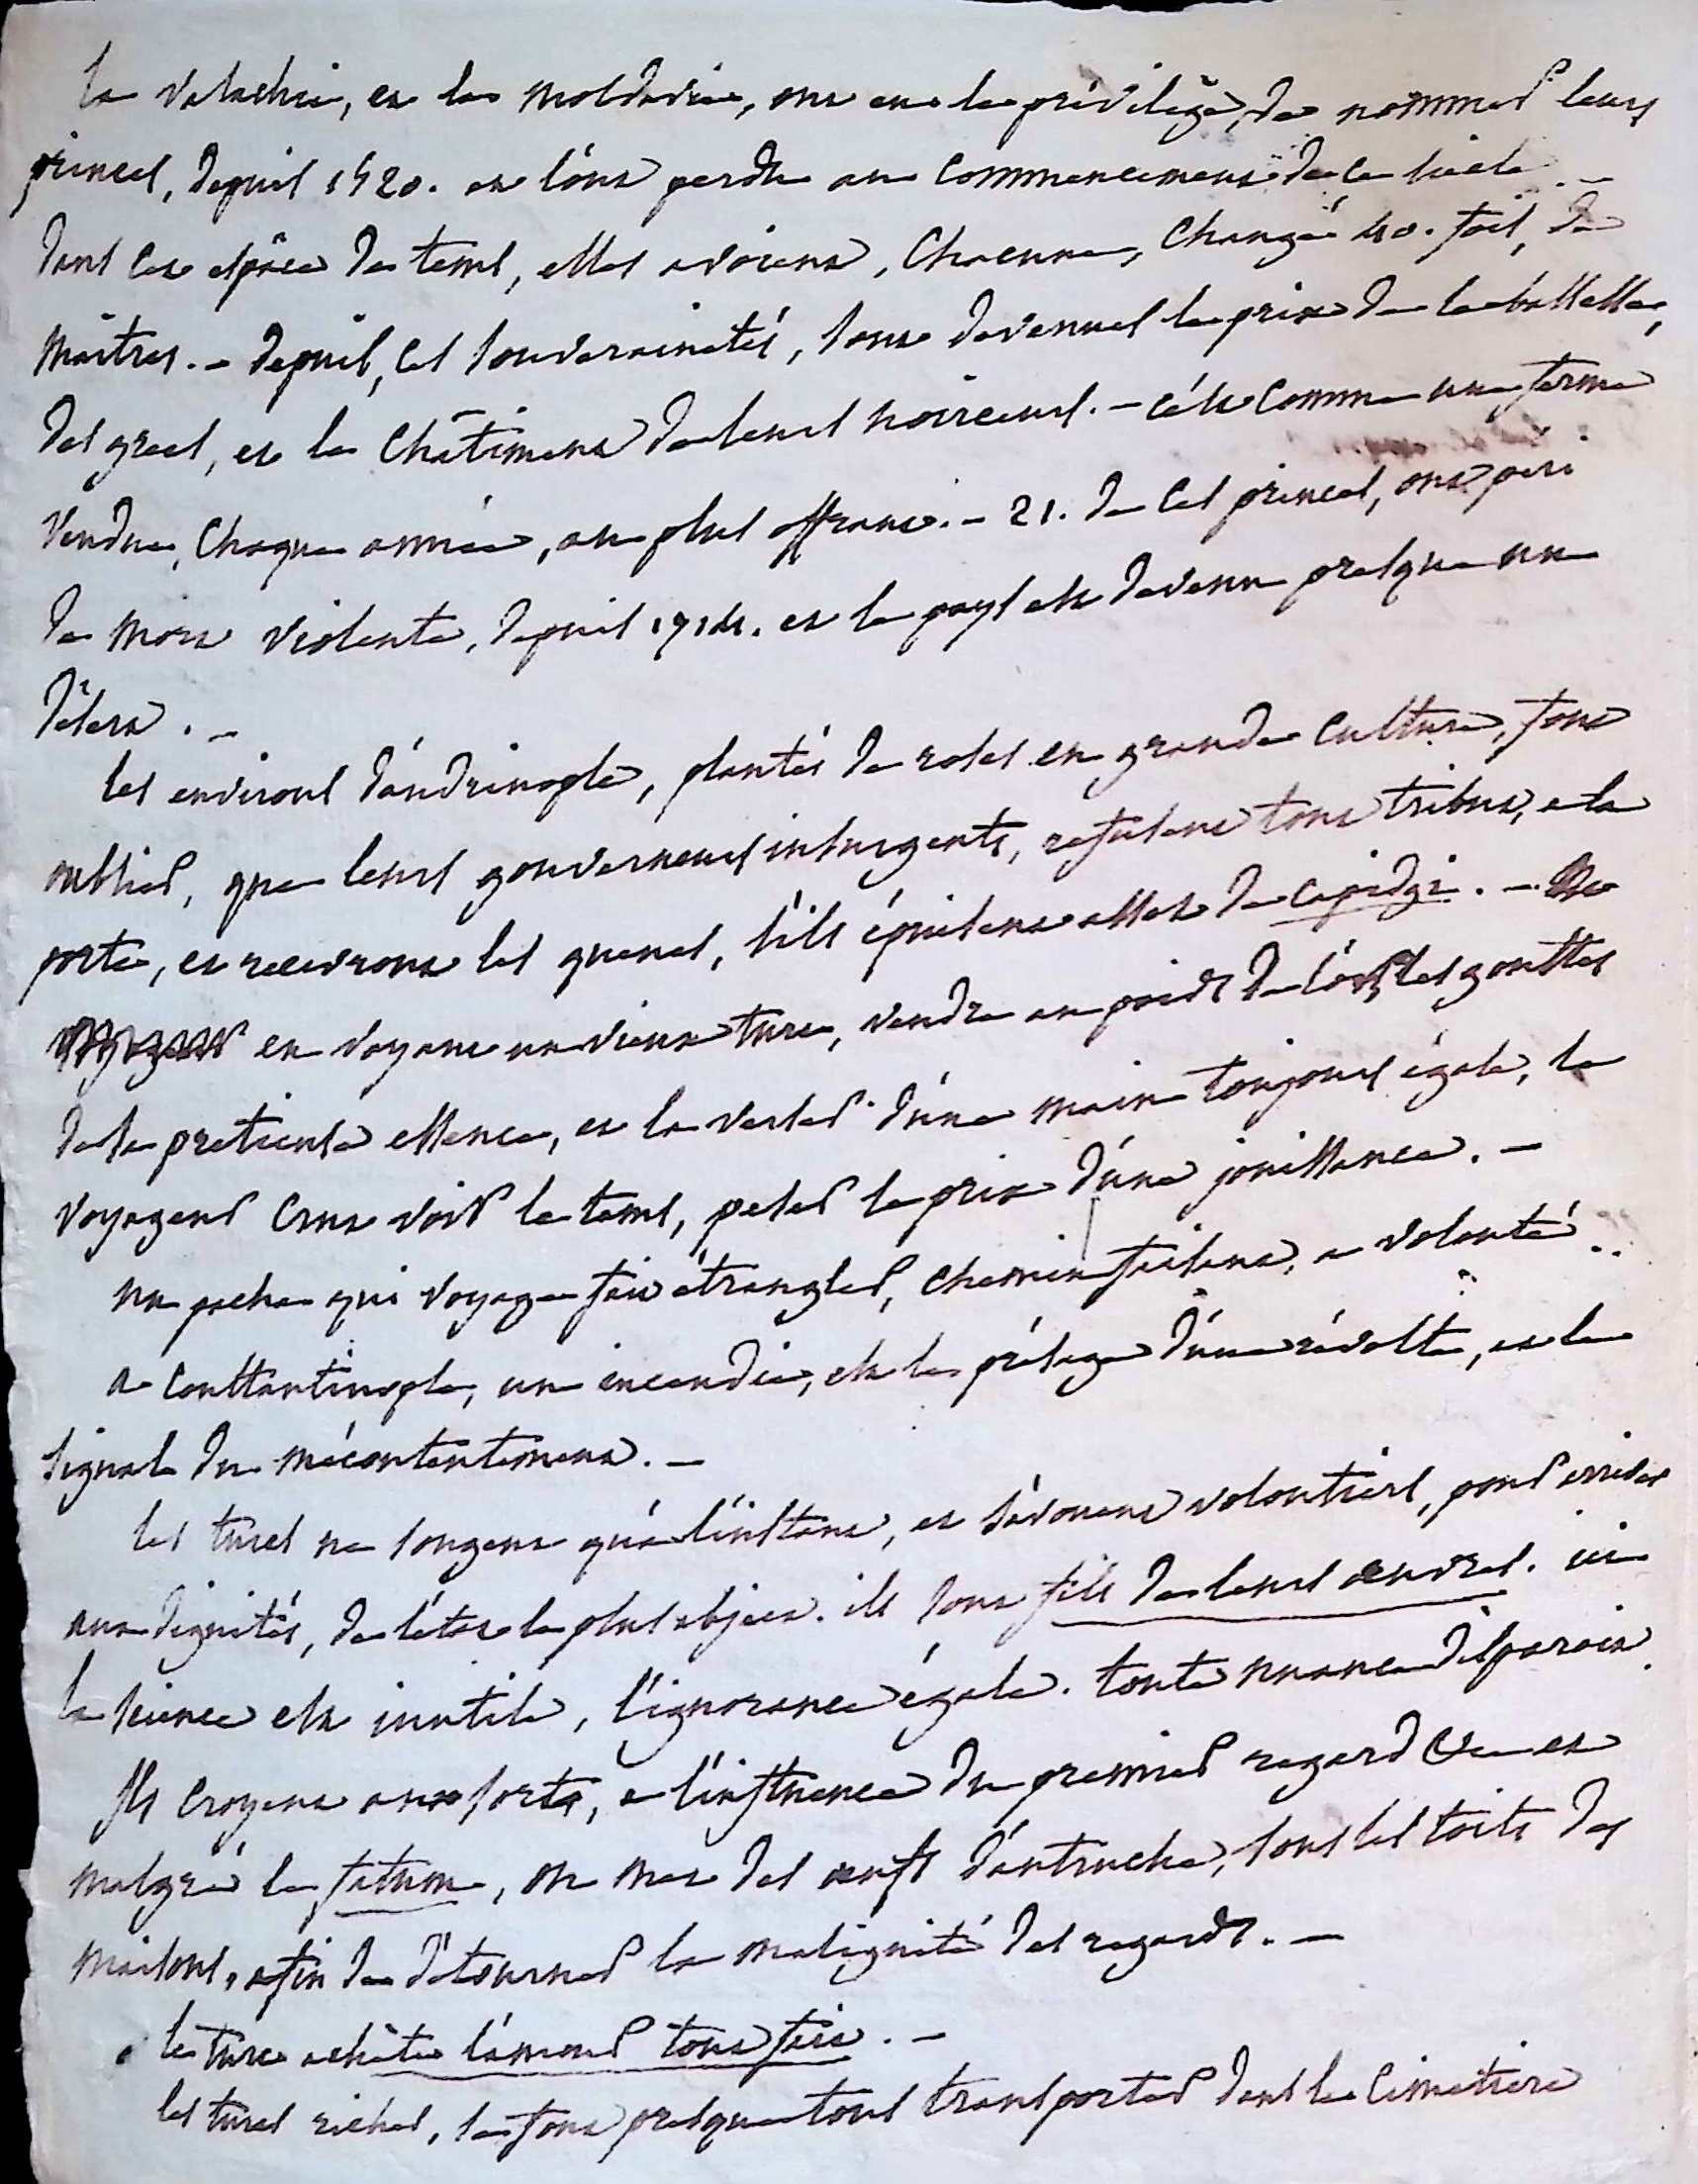 la valachie, et la moldavie, ont eu le privilège, de nommer leurs
princes, depuis 1420. et l'ont perdu au commencement de ce siècle. -
dans cet espace de tems, elles avoient, chacune, changé 40. fois, de
maîtres. - depuis, ces souverainetés, sont devenues le prix de la bassesse,
des grecs, et le châtiment de leurs noirceurs. - c'est comme une ferme
vendue, chaque année, au plus offrant. - 21. de ces princes, ont péri
de mort violente, depuis 1714. et le pays est devenu presque un
désert. -
les environs d'andrinople, plantés de roses en grande culture, font
oublier, que leurs gouverneurs insurgents, refusent tout tribut, a la
porte, et recevront les queues, s'ils épuisent assez de capidgi. -
en voyant un vieux turc, vendre au poids de l'or, les gouttes
de la pretieuse essence, et la verser d'une main toujours égale, le
voyageur crut voir le tems, peser le prix d'une jouissance. -
un pacha qui voyage fait étrangler, chemin faisant, a volonté..
a constantinople, un incendie, est le présage d'une révolte, et le
signal du mécontentement. -
les turcs ne songent qu'a l'instant, et s'avouent volontiers, pour arriver
aux dignités, de l'état le plus abject. ils sont fils de leurs œuvres. ici
la science est inutile, l'ignorance égale. toute nuance disparoit.
Ils croyent aux sorts, a l'influence du premier regard et
malgré le fatum, on met des œufs d'autruche, sous les toits des
maisons, afin de détourner la malignité des regards. -
le turc achète l'amour tout fait. -
les turcs riches, se font presque tous transporter dans le cimetière